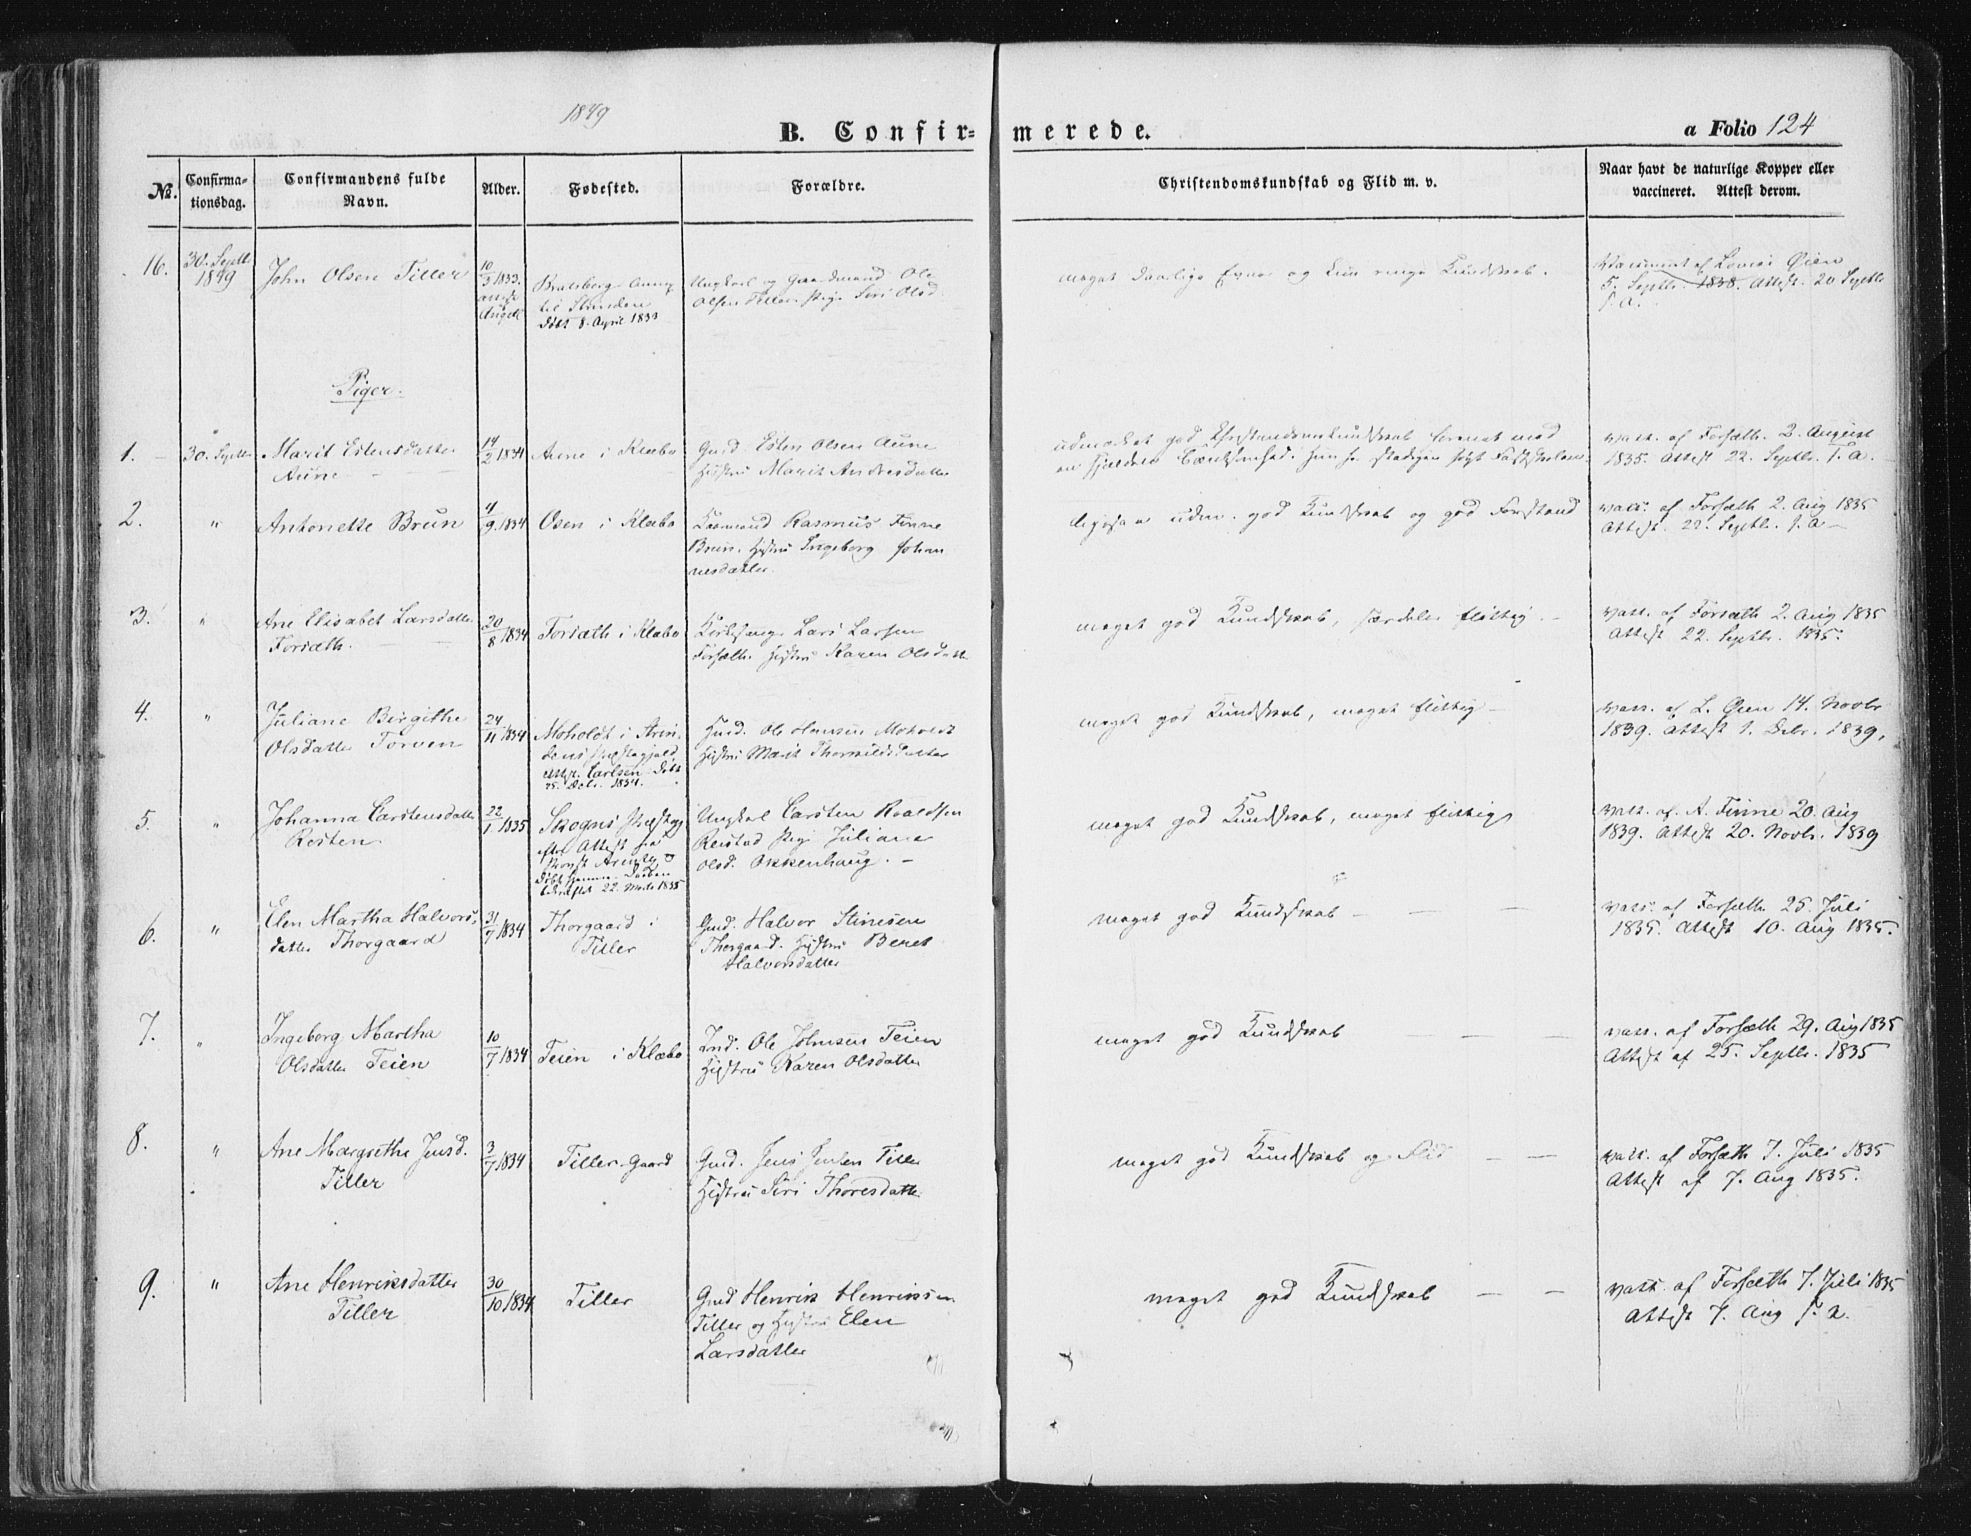 1849
B. Confirmerede.
a Folio 124
No.
Confirmationsdag.
Confirmandens fulde Navn.
Alder.
Fødested.
Forældre.
Christendomskundskab og Flid m. v.
Naar havt de naturlige Kopper eller vaccineret. Attest derom.
16.
30. Septb
1849
John Olsen Tiller
10/3 1833.
Bratsberg Annex
til Strinden
Døbt 8. April 1833
Ungkarl og Gaardmand Ole
Olsen Tiller Pige Siri Olsd.
meget daarlige Evner og kun ringe Kundskab.
Vaccineret af Lovise Øien
5. Septbr. 1838. Attest. 20 Septbr
s. a.
Piger.
1.
30. Septbr
Marit Estensdatter
Aune
14/2 1834
Aune i Klæbo
Gmd. Esten Olsen Aune
Hustru Marit Andersdatter
udmærket god Christendomskundskab forenet med
vacc. af Forsæth. 2. August
1835. Attest 22. Septbr. s. a.
2.
"
Antonette Brun
4/9 1834
Osen i Klæbo
Rasmus Finne
Brun. Hustru Ingeborg Johan
nesdatter.
ligesaa udm. god Kundskab og god Forstand
vacc. af Forsæth 2. Aug 1835
Attest. 22. Septbr. s. a
3.
"
Ane Elisabet Larsdatter
Forsæth.
20/8 1834
Forsæth i Klæbo
Kirkesanger Lars Larsen
Forsæth. Hustru Karen Olsdatt
meget god Kundskab, særdeles flittig.
vacc. af Forsæth 2. Aug 1835
Attest 22. Septbr. 1835.
4.
"
Juliane Birgithe
Olsdatter Torven
24/11 1834
Moholdt i Strin-
dens Præstegjeld
Attst. Carlsen. Døbt
25. Decbr. 1834.
Husd. Ole Hansen Moholdt
Hustru Marit Thorkildsdatter
meget god Kundskab, meget flittig
vacc. af L. Øien 14. Novbr
1839. Attest 1. Debr. 1839.
5.
"
Johanna Carstensdatter
Rosten
22/1 1835
Skogns Præstegj
efter Attest fra
22. Marts 1835
Ungkarl Carsten Roaldsen
Reistad Pige Juliana
Olsd. Okkenhaug.
meget god Kundskab, meget flittig
vacc. af. A. Finne 20. Aug
1839. Attest 20. Novbr. 1839
6.
"
Elen Martha Halvors-
datter Thorgaard
31/7 1834
Thorgaard i
Tiller
Gmd. Halvor Stinesen
Thorgaard. Hustru Beret
Halvorsdatter
meget god Kundskab
vacc. af Forsæth. 25. Juli
1835. Attest 10. Aug 1835.
7.
"
Ingeborg Martha
Olsdatter Teien
10/7 1834
Teien i Klæbo
Ind. Ole Johnsen Teien
Hustru Karen Olsdatter
meget god Kundskab
vacc. af Forsæth 29. Aug 1835
Attest af 25. Septbr. 1835
8.
"
Ane Margrethe Jensd.
Tiller
3/7 1834
Tiller-Gaard
Gmd. Jens Jensen Tiller
Hustru Siri Thoresdatter
meget god Kundskab og Flid
vacc. af Forsæth 7. Juli 1835
Attest af 7. Aug 1835.
9.
"
Ane Henriksdatter
Tiller
30/10 1834
Tiller
Gmd Henrik Henriksen
Tiller og Hustru Elen
Larsdatter
meget god Kundskab
vacc. af Forsæth 7. Juli 1835
Attest 7. Aug s. a.